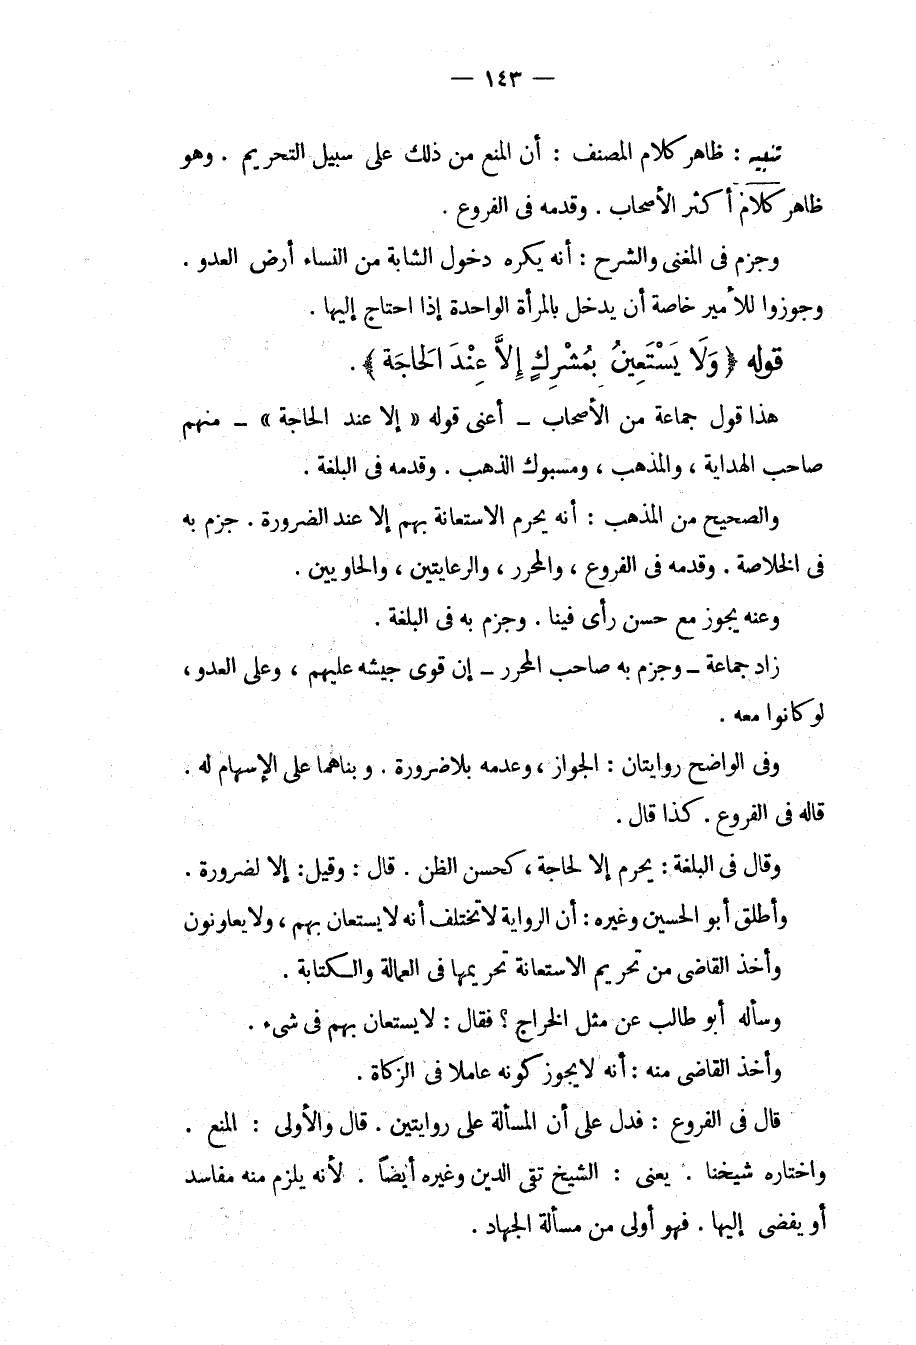 — ١٤٣ —
تنبيه : ظاهر كلام المصنف : أن المنع من ذلك على سبيل التحريم . وهو
ظاهر كلام أكثر الأصحاب . وقدمه فى الفروع .
وجزم فى المغنى والشرح : أنه يكره دخول الشابة من النساء أرض العدو .
وجوزوا للأمير خاصة أن يدخل بالمرأة الواحدة إذا احتاج إليها .
قوله ﴿ وَلَا يَسْتَعِينُ بِمُشْرِكٍ إِلاَّ عِنْدَ الحَاجَة ﴾ .
هذا قول جماعة من الأصحاب – أعنى قوله « إلا عند الحاجة » – منهم
صاحب الهداية ، والمذهب ، ومسبوك الذهب . وقدمه فى البلغة .
والصحيح من المذهب : أنه يحرم الاستعانة بهم إلا عند الضرورة . جزم به
فى الخلاصة . وقدمه فى الفروع ، والمحرر ، والرعايتين ، والحاويين .
وعنه يجوز مع حسن رأى فينا . وجزم به فى البلغة .
زاد جماعة – وجزم به صاحب المحرر – إن قوى جيشه عليهم ، وعلى العدو ،
لو كانوا معه .
وفى الواضح روايتان : الجواز ، وعدمه بلا ضرورة . وبناهما على الإسهام له .
قاله فى الفروع . كذا قال .
وقال فى البلغة : يحرم إلا لحاجة ، كحسن الظن . قال : وقيل : إلا لضرورة .
وأطلق أبو الحسين وغيره : أن الرواية لا تختلف أنه لا يستعان بهم ، ولا يعاونون
وأخذ القاضى من تحريم الاستعانة تحريمها فى العمالة والكتابة .
وسأله أبو طالب عن مثل الخراج ؟ فقال : لا يستعان بهم فى شىء .
وأخذ القاضى منه : أنه لا يجوز كونه عاملا فى الزكاة .
قال فى الفروع : فدل على أن المسألة على روايتين . قال والأولى : المنع .
واختاره شيخنا . يعنى : الشيخ تقى الدين وغيره أيضاً . لأنه يلزم منه مفاسد
أو يفضى إليها . فهو أولى من مسألة الجهاد .